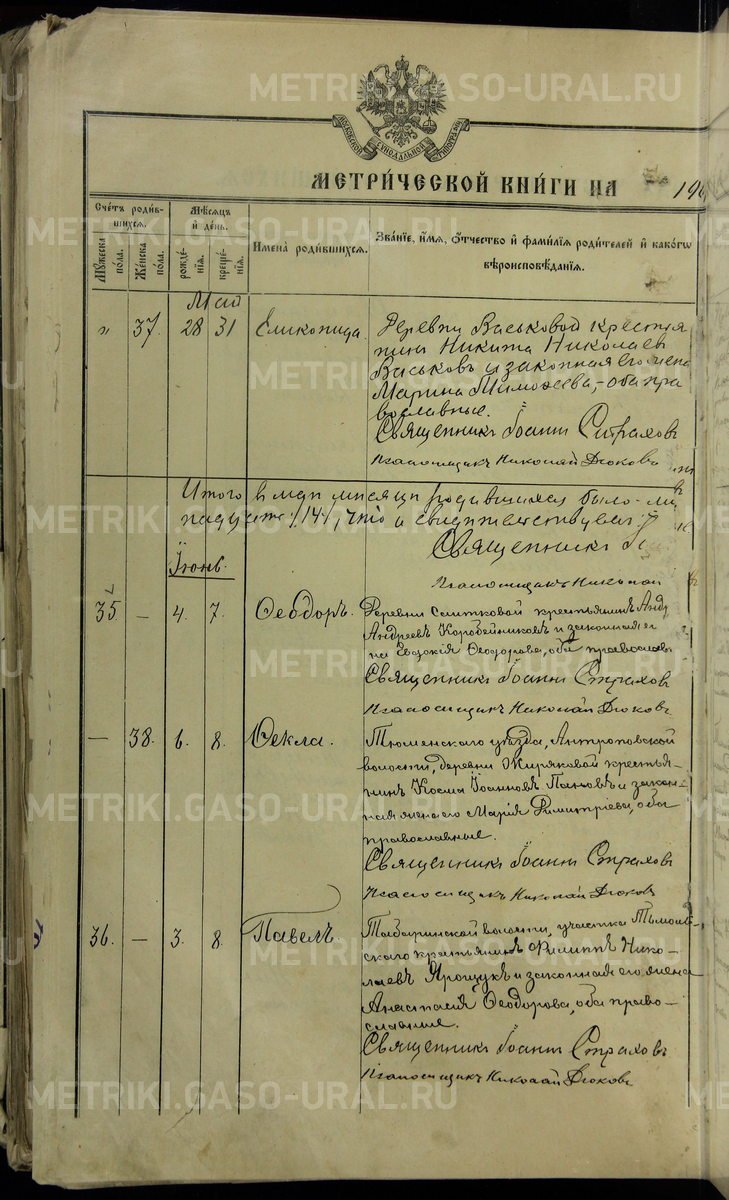 МОСКОВСКОЙ СѴНОДАЛЬНОЙ ТИПОГРАФІИ
МЕТРИ́ЧЕСКОЙ КНИ́ГИ НА 190
Счетъ роди́в-
шихся.
Мѣсяцъ
и де́нь.
Имена̀ роди́вшихся.
Зва́ніе, и́мя, о́тчество и фами́лія роди́телей и како́гѡ
вѣроисповѣ́данія.
Му́жеска по́ла.
Же́нска по́ла.
рожде́нія.
креще́нія.
Май
" 37. 28 31 Еликонида.
Деревни Васьковой крестья
нинъ Никита Николаевъ
Васьковъ и законная его жена
Марина Тимофеева, - оба пра
вославные.
Священникъ Іоаннъ Страховъ
Псаломщикъ Николай Дюковъ
Итого в маи месяце родившихся было
надцать /14/, что и свидетельствуемъ
Священникъ
Псаломщикъ Николай
Іюнь.
35 — 4. 7. Ѳеодоръ.
Деревни крестьянинъ Андр
Андреевъ Коробейниковъ и законная е
на Евдокія Ѳеодорова, оба православ
Священникъ Іоаннъ Страховъ
Псаломщикъ Николай Дюковъ
— 38. 6. 8. Ѳекла.
Тюменскаго уѣзда, Антроповской
волости, деревни Жиряковой крестья-
нинъ Косма Іоанновъ Пановъ и закон-
ная жена его Марія Димитріева, оба
православные.
Священникъ Іоаннъ Страховъ
Псаломщикъ Николай Дюковъ
36. — 3. 8. Павелъ.
Табаринской волости, участка
скаго крестьянинъ Филиппъ Нико-
лаевъ Ярощукъ и законная его жена
Анастасія Ѳеодорова, оба право-
славные.
Священникъ Іоаннъ Страховъ
Псаломщикъ Николай Дюковъ
METRIKI.GASO-URAL.RU